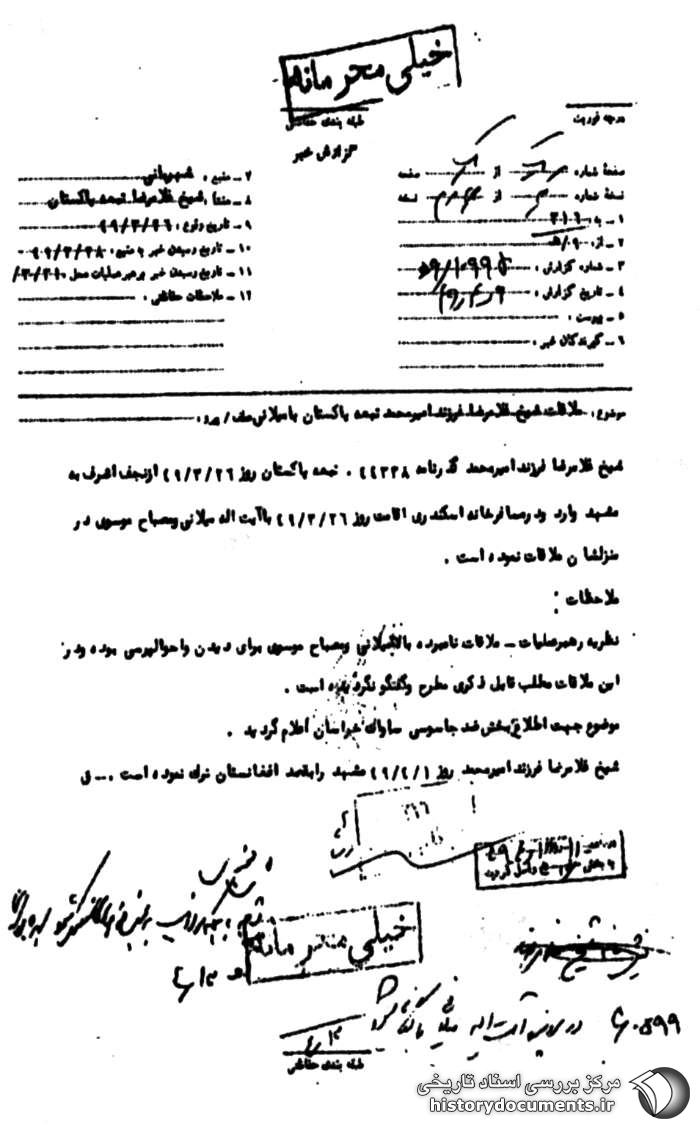 خیلی محرمانه
طبقه بندی حفاظتی
درجه فوریت
گزارش خبر
صفحه شماره از صفحه
نسخه شماره از نسخه
۱ ـ به : ۳۱۶
۲ ـ از :
۳ ـ شماره گزارش :
۴ ـ تاریخ گزارش :
۵ ـ پیوست :
۶ ـ گیرندگان خبر :
۷ ـ منبع : شهربانی
۸ ـ منشأ : شیخ غلامرضا تبعه پاکستان
۹ ـ تاریخ وقوع : ۴۹/۳/۲۶
۱۰ ـ تاریخ رسیدن خبر به منبع : ۴۹/۳/۲۸
۱۱ ـ تاریخ رسیدن خبر برهبر عملیات محل
۱۲ ـ ملاحظات حفاظتی :
موضوع : ملاقات شیخ غلامرضا فرزند امیرمحمد تبعه پاکستان با میلانی
شیخ غلامرضا فرزند امیرمحمد گذرنامه ۴۴۳۳۸ . تبعه پاکستان روز ۴۹/۳/۲۶ ازنجف اشرف به
مشهد وارد ودرمسافرخانه اسکندری اقامت روز ۴۹/۳/۲۶ باآیت اله میلانی ومصباح موسوی در
منزلشان ملاقات نموده است .
ملاحظات :
نظریه رهبرعملیات ـ ملاقات نامبرده با میلانی ومصباح موسوی برای دیدن واحوالپرسی بوده ودر
این ملاقات مطلب قابل ذکری مطرح وگفتگو نگردیده است .
موضوع جهت اطلاع بخش ضد جاسوسی ساواک خراسان اعلام گردید .
شیخ غلامرضا فرزند امیرمحمد روز ۴۹/۴/۱ مشهد رابقصد افغانستان ترک نموده است . ــ ق
خیلی محرمانه
در پرونده آیت اله میلانی بایگانی شود
طبقه بندی حفاظتی
مرکز بررسی اسناد تاریخی
historydocuments.ir